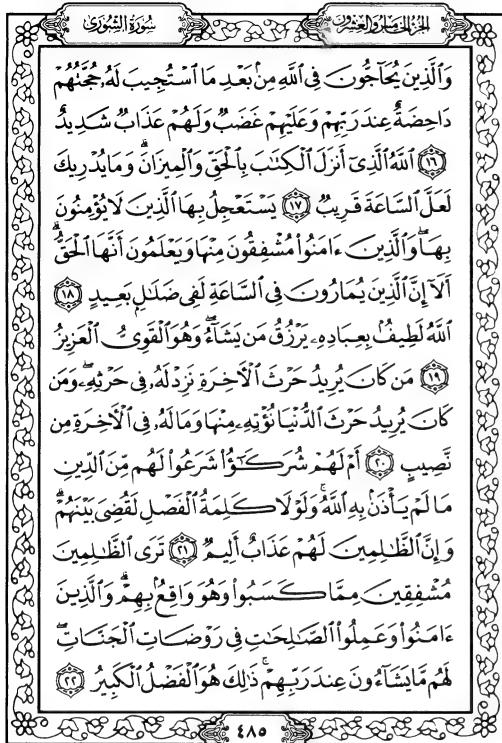 الجزء الخامس والعشرون
سورة الشورى
وَٱلَّذِينَ يُحَآجُّونَ فِى ٱللَّهِ مِنۢ بَعۡدِ مَا ٱسۡتُجِيبَ لَهُۥ حُجَّتُهُمۡ
دَاحِضَةٌ عِندَ رَبِّهِمۡ وَعَلَيۡهِمۡ غَضَبٌ وَلَهُمۡ عَذَابٌ شَدِيدٌ
١٦ ٱللَّهُ ٱلَّذِىٓ أَنزَلَ ٱلۡكِتَٰبَ بِٱلۡحَقِّ وَٱلۡمِيزَانَۗ وَمَا يُدۡرِيكَ
لَعَلَّ ٱلسَّاعَةَ قَرِيبٌ ١٧ يَسۡتَعۡجِلُ بِهَا ٱلَّذِينَ لَا يُؤۡمِنُونَ
بِهَاۖ وَٱلَّذِينَ ءَامَنُواْ مُشۡفِقُونَ مِنۡهَا وَيَعۡلَمُونَ أَنَّهَا ٱلۡحَقُّۗ
أَلَآ إِنَّ ٱلَّذِينَ يُمَارُونَ فِى ٱلسَّاعَةِ لَفِى ضَلَٰلِۭ بَعِيدٍ ١٨
ٱللَّهُ لَطِيفُۢ بِعِبَادِهِۦ يَرۡزُقُ مَن يَشَآءُۖ وَهُوَ ٱلۡقَوِىُّ ٱلۡعَزِيزُ
١٩ مَن كَانَ يُرِيدُ حَرۡثَ ٱلۡأٓخِرَةِ نَزِدۡ لَهُۥ فِى حَرۡثِهِۦۖ وَمَن
كَانَ يُرِيدُ حَرۡثَ ٱلدُّنۡيَا نُؤۡتِهِۦ مِنۡهَا وَمَا لَهُۥ فِى ٱلۡأٓخِرَةِ مِن
نَّصِيبٍ ٢٠ أَمۡ لَهُمۡ شُرَكَٰٓؤُاْ شَرَعُواْ لَهُم مِّنَ ٱلدِّينِ
مَا لَمۡ يَأۡذَنۢ بِهِ ٱللَّهُۚ وَلَوۡلَا كَلِمَةُ ٱلۡفَصۡلِ لَقُضِىَ بَيۡنَهُمۡۗ
وَإِنَّ ٱلظَّٰلِمِينَ لَهُمۡ عَذَابٌ أَلِيمٌ ٢١ تَرَى ٱلظَّٰلِمِينَ
مُشۡفِقِينَ مِمَّا كَسَبُواْ وَهُوَ وَاقِعُۢ بِهِمۡۗ وَٱلَّذِينَ
ءَامَنُواْ وَعَمِلُواْ ٱلصَّٰلِحَٰتِ فِى رَوۡضَاتِ ٱلۡجَنَّاتِۖ
لَهُم مَّا يَشَآءُونَ عِندَ رَبِّهِمۡۚ ذَٰلِكَ هُوَ ٱلۡفَضۡلُ ٱلۡكَبِيرُ ٢٢
٤٨٥